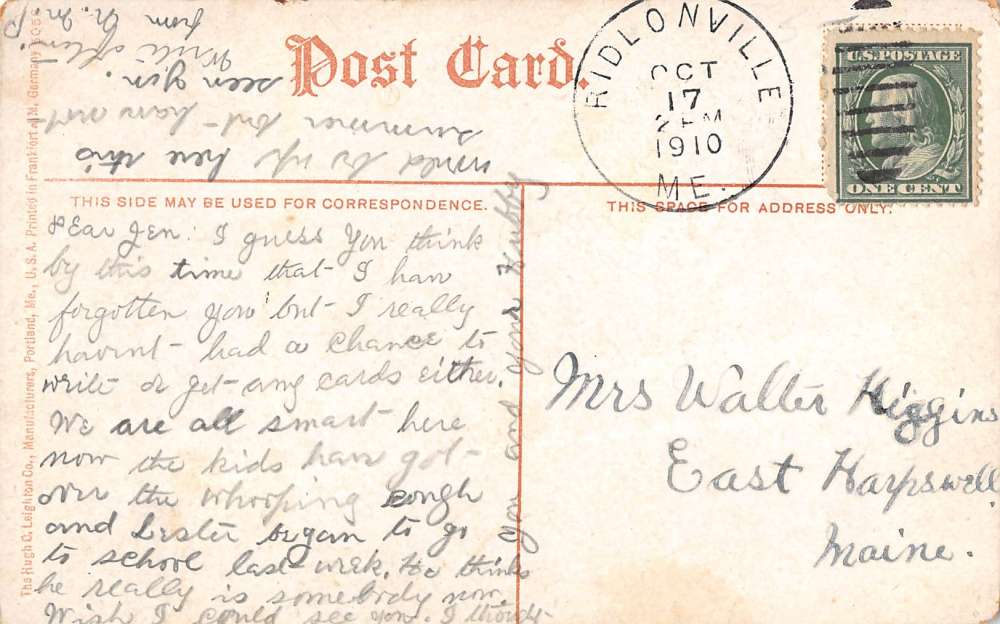 Post Card.
RIDLONVILLE
OCT
17
2 PM
1910
ME.
U.S. POSTAGE
ONE CENT
THIS SIDE MAY BE USED FOR CORRESPONDENCE.
THIS SPACE FOR ADDRESS ONLY.
The Hugh C. Leighton Co., Manufacturers, Portland, Me., U. S. A. Printed in Frankfort a/M, Germany
Dear Jen: I guess you think
by this time that I have
forgotten you but I really
havint had a chance to
write or get any cards either.
We are all smart here
now the kids have got
over the whooping cough
and Lester began to go
to school last week. He thinks
he really is somebody now.
Wish I could see you. I thought
you and your hubby
would be up here this
summer but have not
seen you.
Will
from
Mrs Walter Higgins
East Harpswell
Maine.